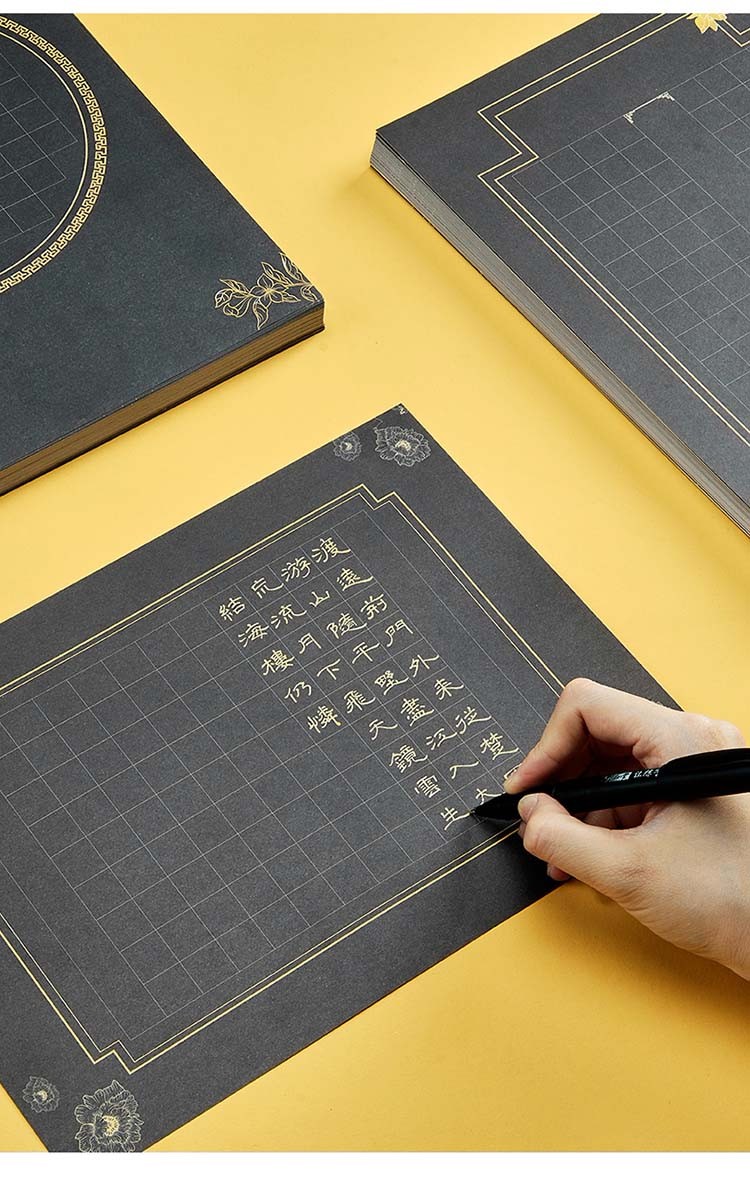 渡遠荊門外来從楚
游山隨平野盡江入大
荒流月下飛天鏡雲生
結海樓仍憐